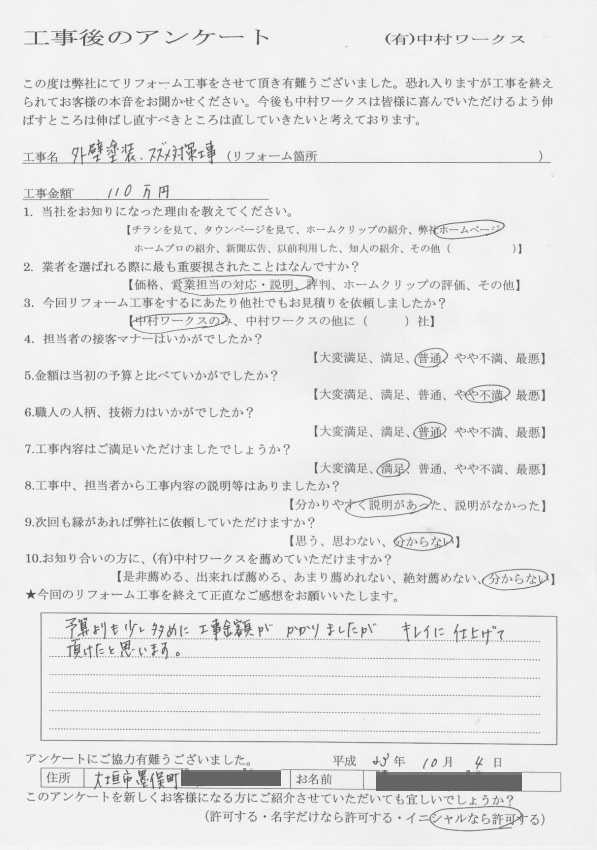 工事後のアンケート　(有)中村ワークス
この度は弊社にてリフォーム工事をさせて頂き有難うございました。恐れ入りますが工事を終え
られてお客様の本音をお聞かせください。今後も中村ワークスは皆様に喜んでいただけるよう伸
ばすところは伸ばし直すべきところは直していきたいと考えております。
工事名　外壁塗装、スズメ対策工事（リフォーム箇所　）
工事金額　110万円
1．当社をお知りになった理由を教えてください。
【チラシを見て、タウンページを見て、ホームクリップの紹介、弊社ホームページ
ホームプロの紹介、新聞広告、以前利用した、知人の紹介、その他（　）】
2．業者を選ばれる際に最も重要視されたことはなんですか？
【価格、営業担当の対応・説明、評判、ホームクリップの評価、その他】
3．今回リフォーム工事をするにあたり他社でもお見積りを依頼しましたか？
【中村ワークスのみ、中村ワークスの他に（　）社】
4．担当者の接客マナーはいかがでしたか？
【大変満足、満足、普通、やや不満、最悪】
5.金額は当初の予算と比べていかがでしたか？
【大変満足、満足、普通、やや不満、最悪】
6.職人の人柄、技術力はいかがでしたか？
【大変満足、満足、普通、やや不満、最悪】
7.工事内容はご満足いただけましたでしょうか？
【大変満足、満足、普通、やや不満、最悪】
8.工事中、担当者から工事内容の説明等はありましたか？
【分かりやすく説明があった、説明がなかった】
9.次回も縁があれば弊社に依頼していただけますか？
【思う、思わない、分からない】
10.お知り合いの方に、(有)中村ワークスを薦めていただけますか？
【是非薦める、出来れば薦める、あまり薦めれない、絶対薦めない、分からない】
★今回のリフォーム工事を終えて正直なご感想をお願いいたします。
予算よりも少し多めに工事金額がかかりましたが　キレイに仕上げて
頂けたと思います。
アンケートにご協力有難うございました。　平成 23 年 10 月 4 日
住所　大垣市墨俣町　お名前
このアンケートを新しくお客様になる方にご紹介させていただいても宜しいでしょうか？
（許可する・名字だけなら許可する・イニシャルなら許可する）